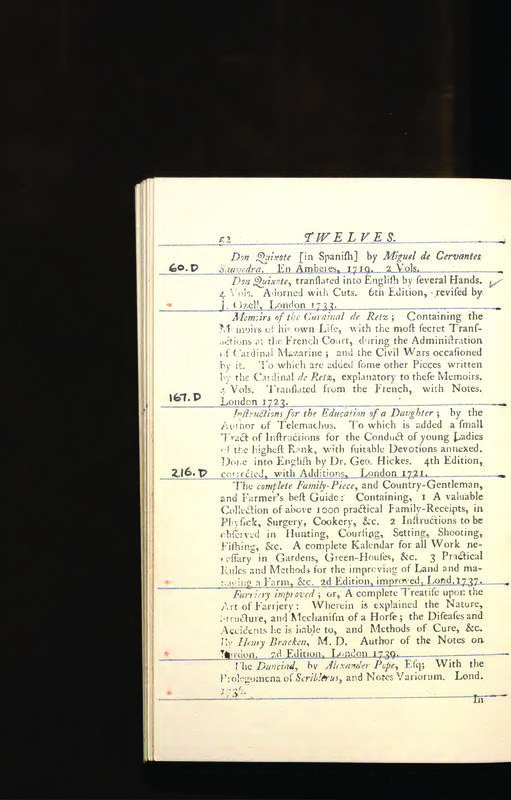 52 TWELVES.
Don Quixote [in Spaniſh] by Miguel de Cervantes
60.D Saavedra. En Amberes, 1719. 2 Vols.
Don Quixote, tranſlated into Engliſh by ſeveral Hands.
4 Vols. Adorned with Cuts. 6th Edition, reviſed by
J. Ozell, London 1733.
Memoirs of the Cardinal de Retz; Containing the
Memoirs of his own Life, with the moſt ſecret Tranſ-
actions at the French Court, during the Adminiſtration
of Cardinal Mazarine; and the Civil Wars occaſioned
by it. To which are added ſome other Pieces written
by the Cardinal de Retz, explanatory to theſe Memoirs.
4 Vols. Tranſlated from the French, with Notes.
167.D London 1723.
Inſtructions for the Education of a Daughter; by the
Author of Telemachus. To which is added a ſmall
Tract of Inſtructions for the Conduct of young Ladies
of the higheſt Rank, with ſuitable Devotions annexed.
Done into Engliſh by Dr. Geo. Hickes. 4th Edition,
216.D corrected, with Additions, London 1721.
The complete Family-Piece, and Country-Gentleman,
and Farmer's beſt Guide: Containing, 1 A valuable
Collection of above 1000 practical Family-Receipts, in
Phyſick, Surgery, Cookery, &c. 2 Inſtructions to be
obſerved in Hunting, Courſing, Setting, Shooting,
Fiſhing, &c. A complete Kalendar for all Work ne-
ceſſary in Gardens, Green-Houſes, &c. 3 Practical
Rules and Methods for the improving of Land and ma-
naging a Farm, &c. 2d Edition, improved, Lond. 1737.
Farriery improved; or, A complete Treatiſe upon the
Art of Farriery: Wherein is explained the Nature,
Structure, and Mechaniſm of a Horſe; the Diſeaſes and
Accidents he is liable to, and Methods of Cure, &c.
By Henry Bracken, M. D. Author of the Notes on
Burdon. 2d Edition, London 1739.
The Dunciad, by Alexander Pope, Eſq; With the
Prolegomena of Scriblerus, and Notes Variorum. Lond.
1736.
In